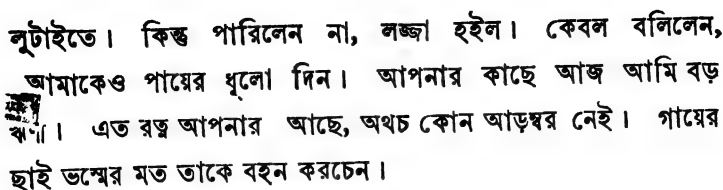 লুটাইতে। কিন্তু পারিলেন না, লজ্জা হইল। কেবল বলিলেন,
আমাকেও পায়ের ধূলো দিন। আপনার কাছে আজ আমি বড়
ঋণী। এত রত্ন আপনার আছে, অথচ কোন আড়ম্বর নেই। গায়ের
ছাই ভস্মের মত তাকে বহন করচেন।